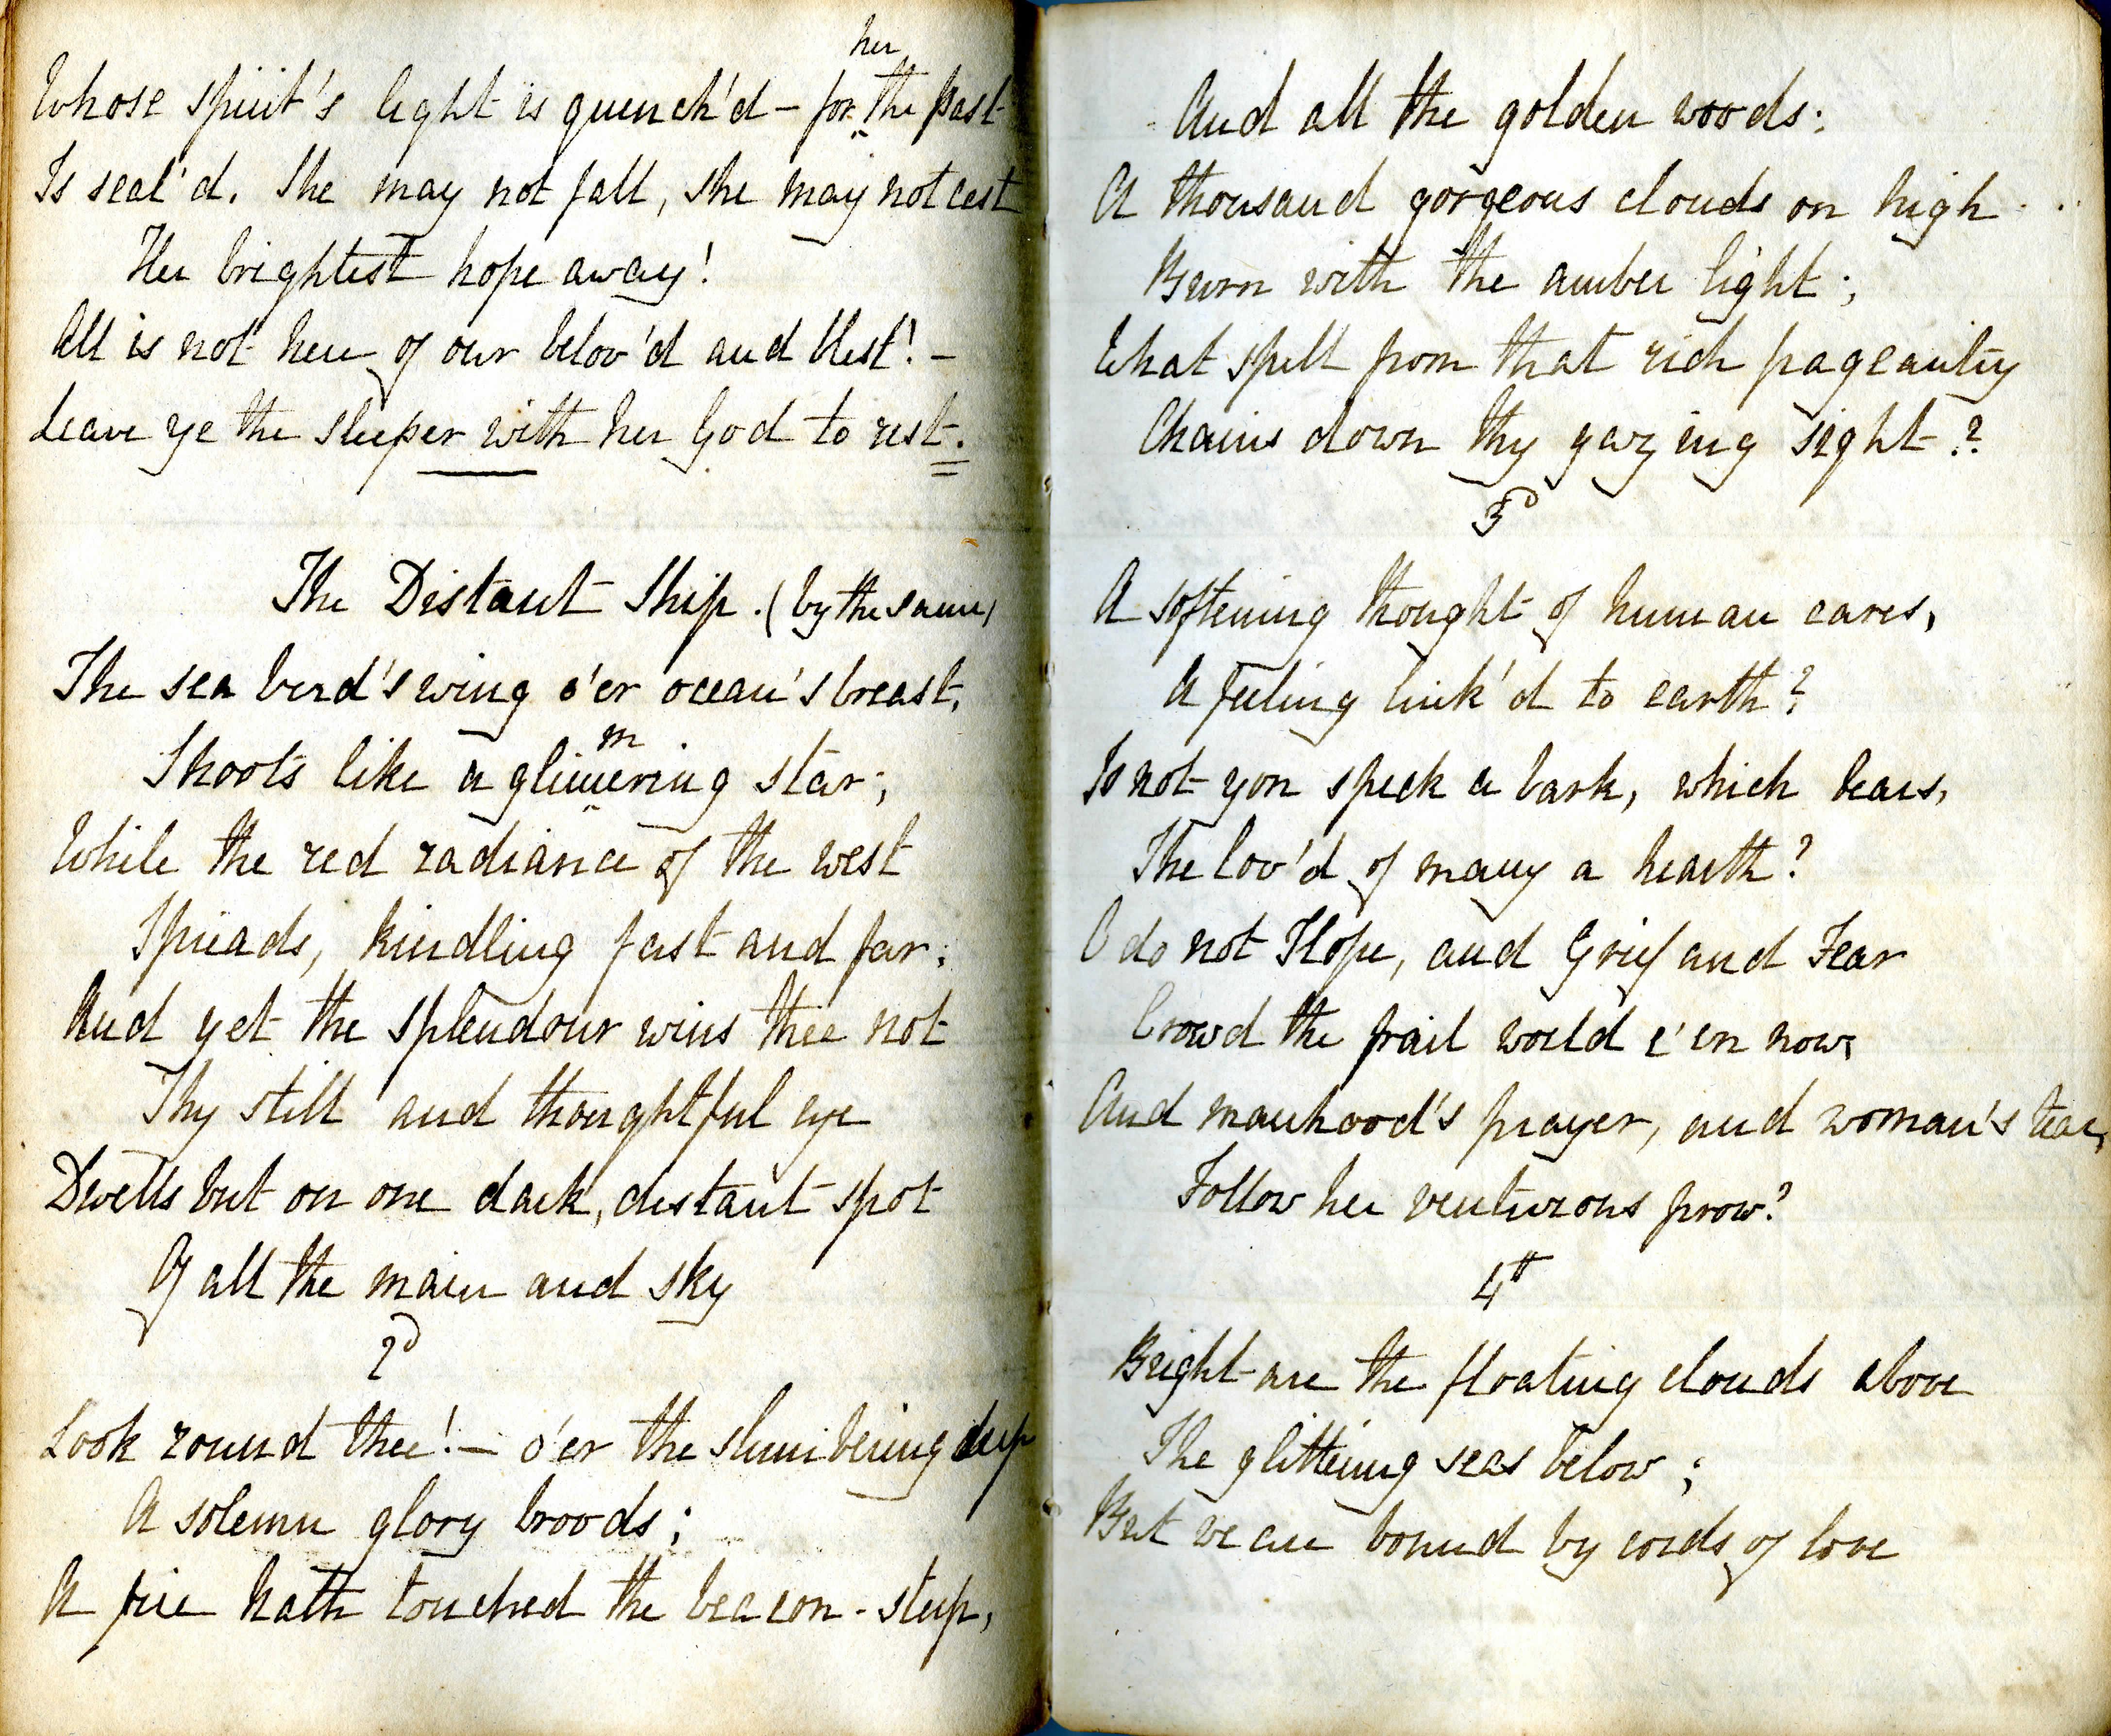 Whose spirit's light is quench'd – for her the past
Is seal'd. She may not fall, she may not cast
Her brightest hope away!
All is not here of our belov'd and blest! –
Leave ye the sleeper with her God to rest.
The Distant Ship. (by the same)
The sea bird's wing o'er ocean's breast,
Shoots like a glimmering star;
While the red radiance of the west
Spreads, kindling fast and far;
And yet the splendour wins thee not
Thy still and thoughtful eye
Dwells but on one dark, distant spot
Of all the main and sky
2d
Look round thee! – o'er the slumbering deep
A solemn glory broods;
A fire hath touched the beacon-steep,
And all the golden woods;
A thousand gorgeous clouds on high
Burn with the amber light;
What spell from that rich pageantry
Chains down thy gazing sight?
3d
A softening thought of human cares,
A feeling link'd to earth?
Is not yon speck a bark, which bears,
The lov'd of many a hearth?
O do not Hope, and Grief and Fear
Crowd the frail world e'en now,
And manhood's prayer, and woman's tear,
Follow her venturous prow?
4t
Bright are the floating clouds above
The glittering seas below;
But we are bound by cords of love